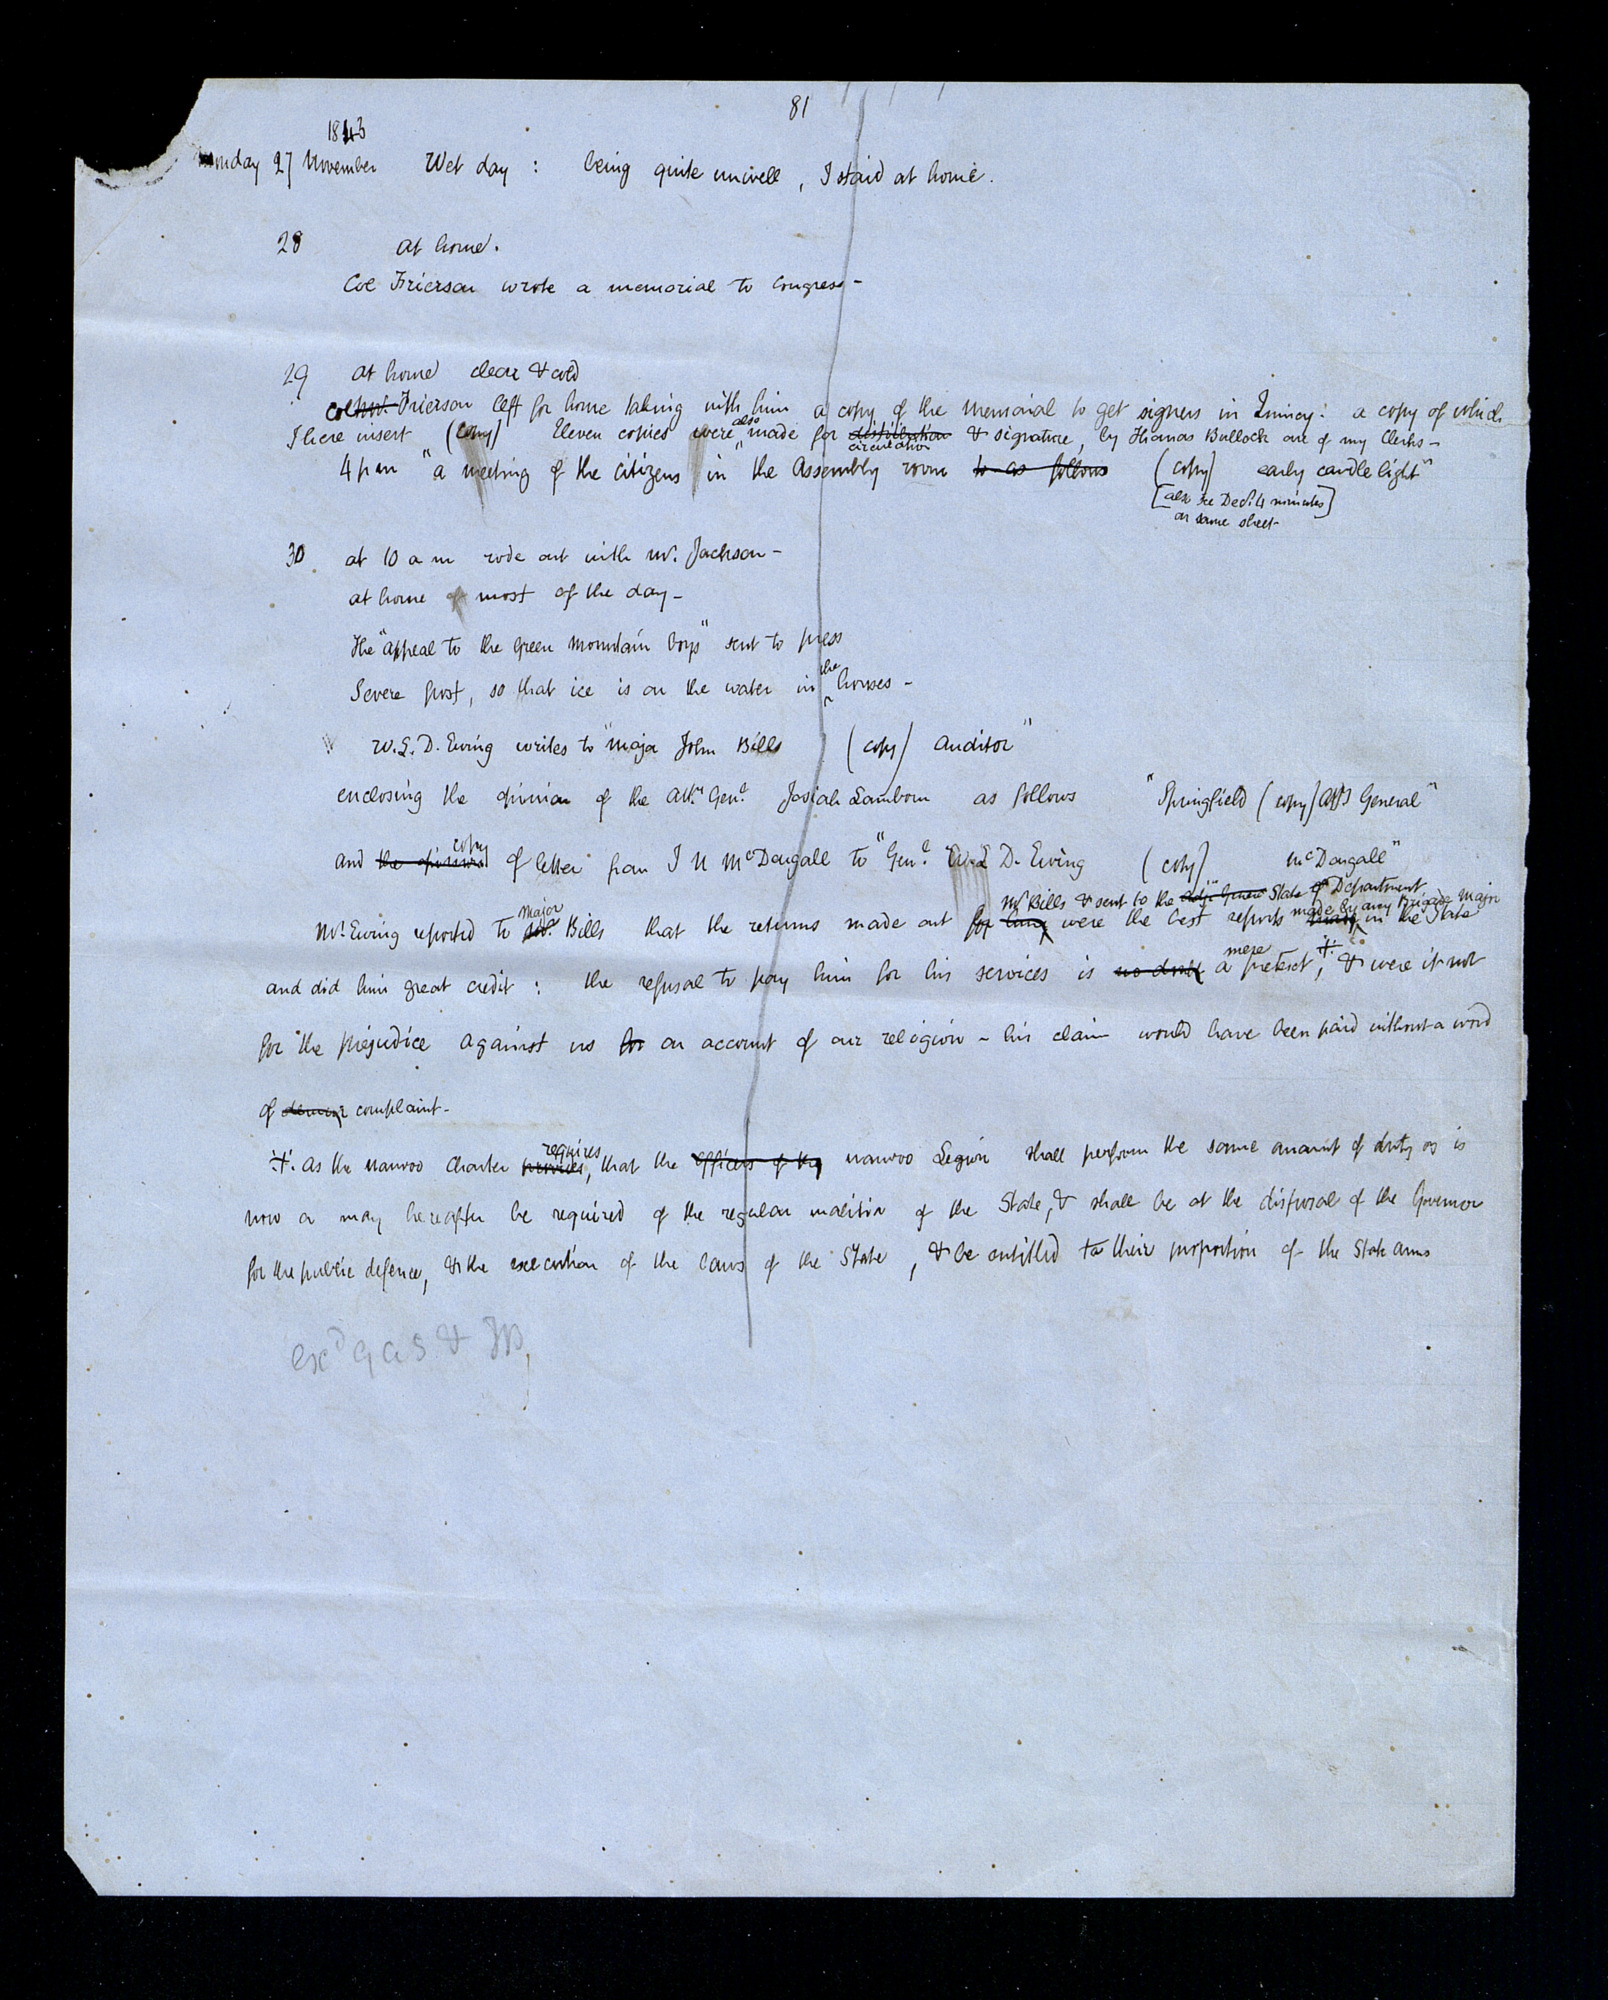 81
1843
Monday 27 November Wet day : being quite unwell, I staid at home.
28 at home.
Col Frierson wrote a memorial to Congress -
29 at home clear & cold
Col Mr. Frierson left for home taking with him a copy of the memorial to get signers in Quincy: a copy of which
also
I here insert (copy) Eleven copies were made for distribution & signature, by Thomas Bullock one of my Clerks -
circulation
4 p m "a meeting of the citizens in" the Assembly room to as follows (copy) early candle light"
[also see Decr. 4 minutes]
on same sheet
30 at 10 a m rode out with Mr. Jackson -
at home most of the day -
The "appeal to the Green Mountain boys" sent to press
the
Severe frost, so that ice is on the water in houses -
W. L. D. Ewing writes to "Major John Bills (copy) Auditor"
enclosing the opinion of the Atty. Genl. Josiah Lamborn as follows "Springfield (copy) Atty General"
copy
and the opinion of letter from J N McDougall to "Genl. W. L. D. Ewing (copy) McDougall"
Mr. Bills & sent to the Adjt. General State of Department
major made by any Brigade Major
Mr. Ewing reported to Mr. Bills that the returns made out for were the best reports made in the State
mere
and did him great credit : the refusal to pay him for his services is no doubt a pretext, & were it not
for the prejudice against us for on account of our religion - his claim would have been paid without a word
of complaint -
requires
as the Nauvoo Charter provides, that the officers of the Nauvoo Legion shall perform the same amount of duty as is
now or may hereafter be required of the regular militia of the State, & shall be at the disposal of the Governor
for the public defence, & the execution of the laws of the State, & be entitled to their proportion of the State arms
exd G A S & JB